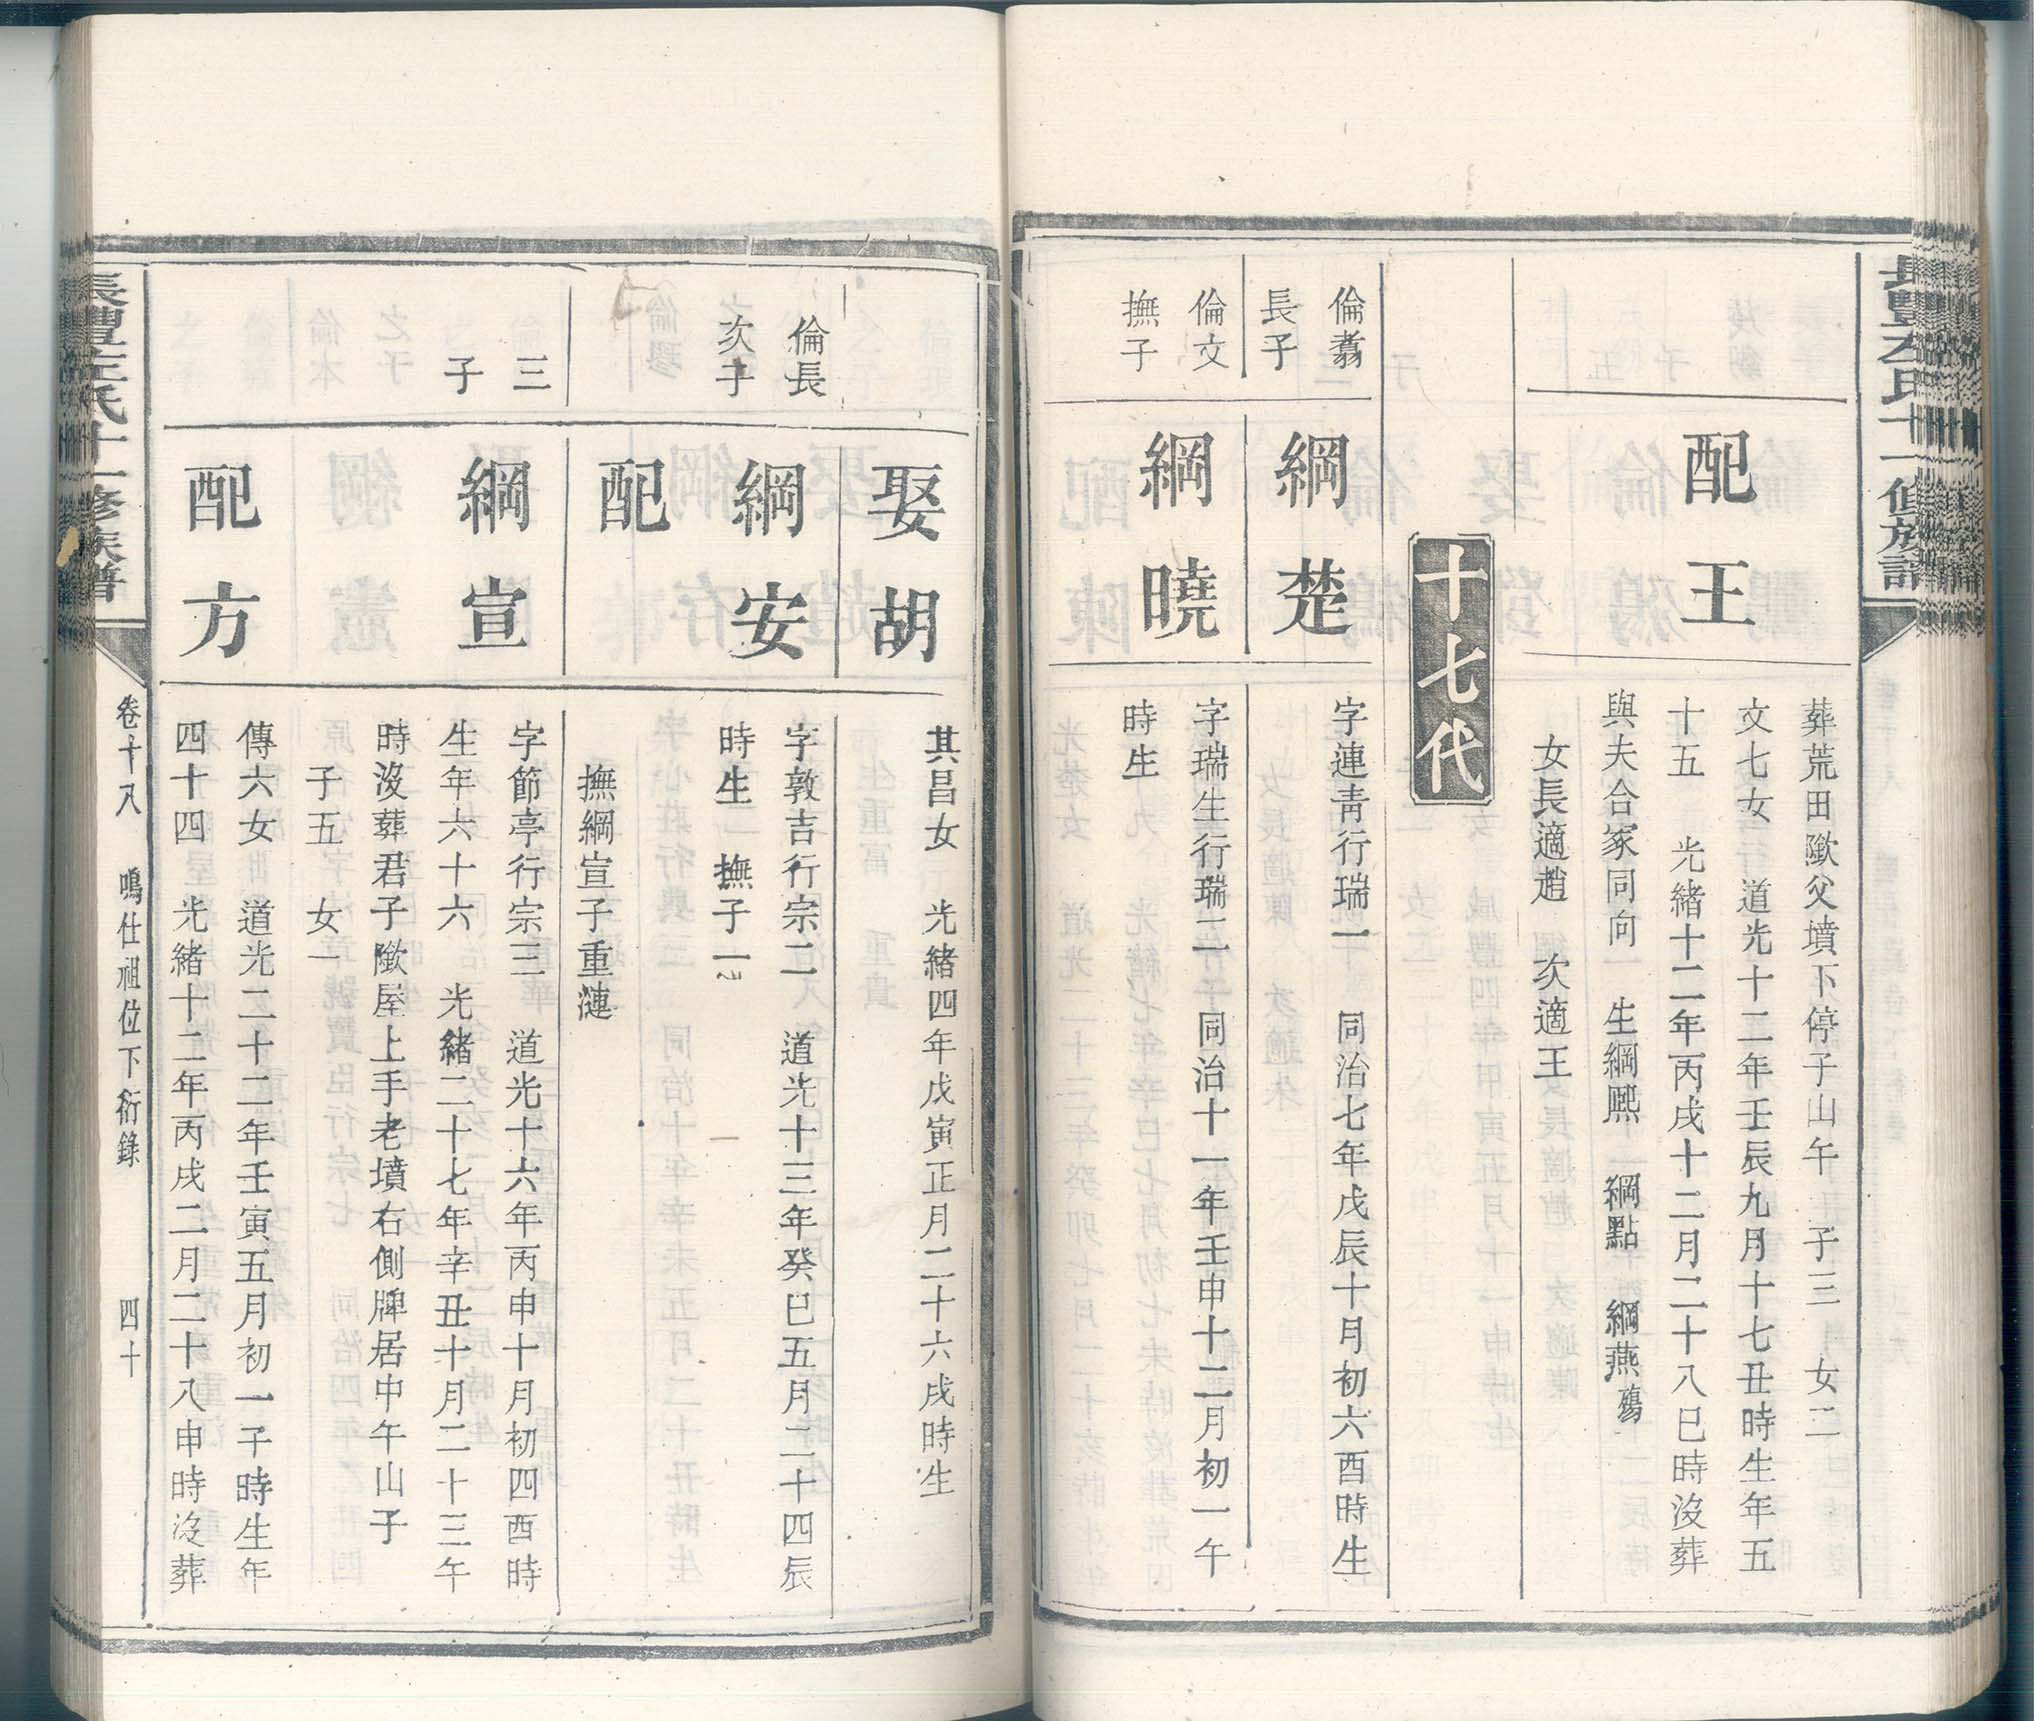 長豐左氏十一修族譜
配王
葬荒田墩父墳下停子山午 子三 女二
文七女 道光十二年壬辰九月十七丑時生年五
十五 光緒十二年丙戌十二月二十八巳時沒葬
與夫合冢同向 生綱熈 綱點 綱燕殤
女長適趙 次適王
十七代
倫翥
長子
綱楚
字連青行瑞一 同治七年戊辰十月初六酉時生
倫文
撫子
綱曉
字瑞生行瑞二 同治十一年壬申十二月初一午
時生
娶胡
其昌女 光緒四年戊寅正月二十六戌時生
倫長
次子
綱安
字敦吉行宗二 道光十三年癸巳五月二十四辰
時生 撫子一
配
撫綱宣子重漣
三
子
綱宣
字節亭行宗三 道光十六年丙申十月初四酉時
生年六十六 光緒二十七年辛丑十月二十三午
時沒葬君子墩屋上手老墳右側牌居中午山子
子五 女一
配方
傳六女 道光二十二年壬寅五月初一子時生年
四十四 光緒十二年丙戌二月二十八申時沒葬
長豐左氏十一修族譜
卷十八 鳴仕祖位下衍錄 四十